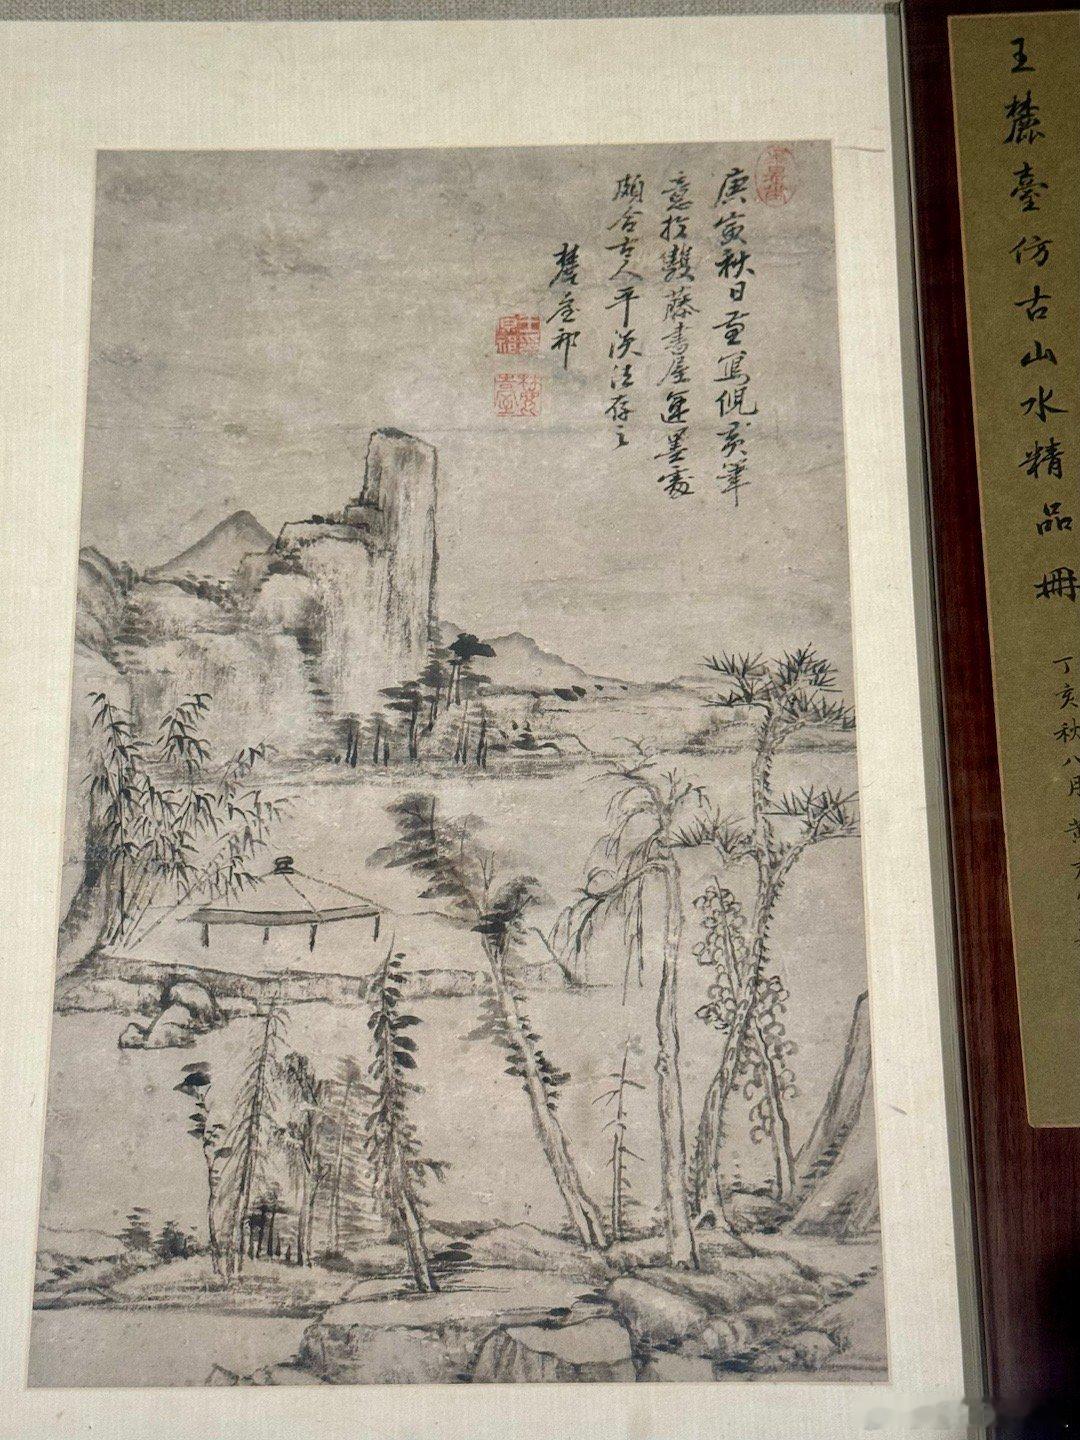 王麓臺仿古山水精品冊
丁亥秋八月黃
庚寅秋日寫倪黃筆
意扵雙藤書屋運墨處
頗合古人平淡法存之
麓臺祁